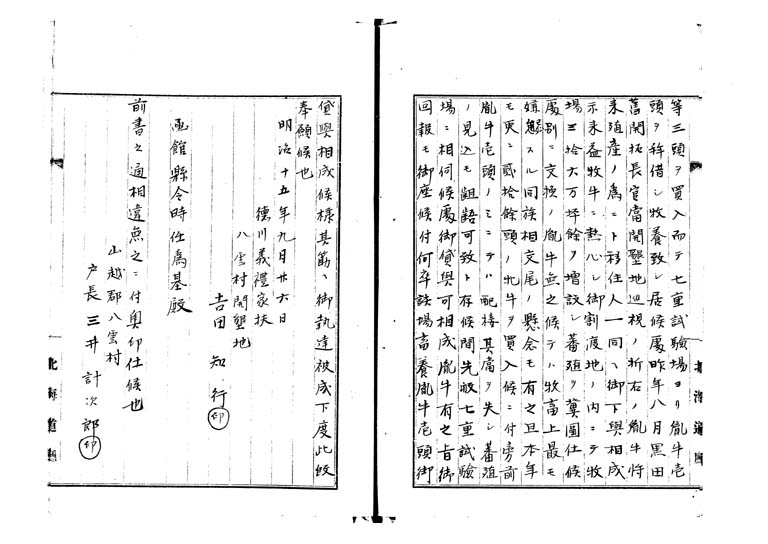 等三頭ヲ買入而テ七重試験場ヨリ胤牛壱
頭ヲ拝借シ牧養致シ居候處昨年八月黒田
舊開拓長官當開墾地巡視ノ折右ノ胤牛将
来殖産ノ為ニト移住人一同ヘ御下與相成
示来益牧牛ニ熱心シ御割渡地ノ内ニテ牧
場三拾六万坪餘ヲ増設シ蕃殖ヲ冀圖仕候
處別ニ交換ノ胤牛無之候テハ牧畜上最モ
嫌忌スル同族相交尾ノ懸念モ有之且本年
モ更ニ貳拾餘頭ノ牝牛ヲ買入候ニ付旁前
胤牛壱頭ノミニテハ配搭其當ヲ失シ蕃殖
ノ見込モ齟齬可致ト存候間先般七重試験
場ニ相伺候處御貸與可相成胤牛有之旨御
回報モ御座候付何卒該場畜養胤牛壱頭御
貸與相成候様其筋ヘ御執達被成下度此段
奉願候也
明治十五年九月廿六日
徳川義禮家扶
八雲村開墾地
吉田知行 印
函館縣令時任為基殿
前書之通相違無之ニ付奥印仕候也
山越郡八雲村
戸長 三井計次郎 印
北海道廳